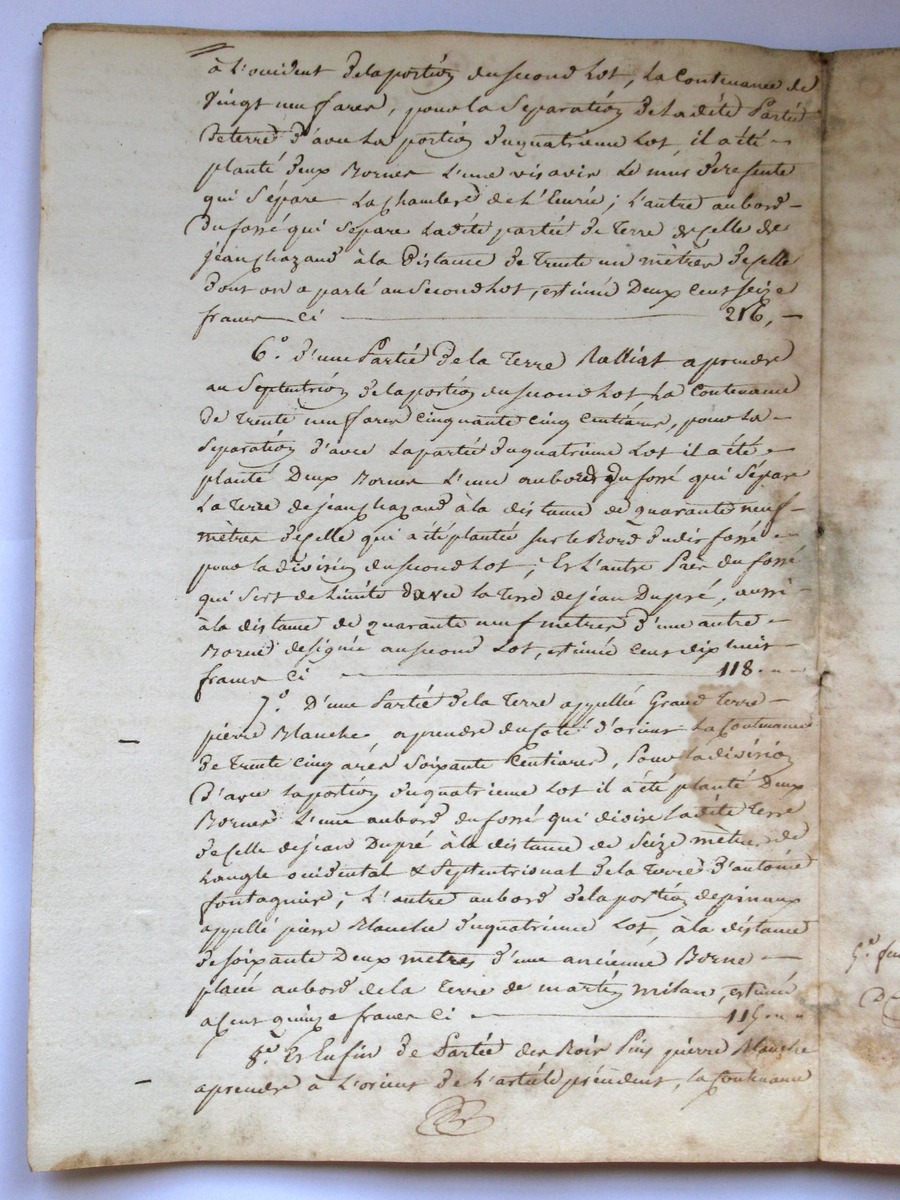 à L'occident de la portion du second Lot, la Contenance de
vingt neuf ares, pour la Separation de la dite Partie
de terre d'avec la portion du quatrieme Lot, il a été
planté deux Bornes L'une vis avis le mur de refente
qui Sépare La chambre de L'Ecurie; L'autre au bord
du fossé qui Sépare Ladite partie de Terre de Celle de
jean chazaud à la Distance de Trente un mètres de Celle
dont on a parlé au Second Lot, estimée Deux Cent Seize
francs Ci 216,
6.° d'une Partie de la Terre Ralliat a prendre
au Septentrion de la portion du second Lot La Contenance
de Trente neuf ares cinquante cinq Centiares, pour la
separation d'avec la partie du quatrieme Lot il a été
planté Deux Bornes L'une au bord du fossé qui Sépare
La Terre de jean chazaud à la distance de quarante neuf
mètres de Celle qui a été plantée sur le Bord du dit fossé
pour la division du second Lot; Et L'autre Près du fossé
qui Sert de Limite d'avec la Terre de jean Dupré, aussi
à la distance de quarante neuf mètres d'une autre
Borne designée au second Lot, estimée Cent dix huit
francs Ci 118
7.° D'une Partie de la Terre appellée Grand Terre
pierre Blanche a prendre du coté d'orient La Contenance
de Trente Cinq ares Soixante Centiares, Pour la division
d'avec la portion du quatrieme Lot il a été planté Deux
Bornes L'une au bord du fossé qui divise Ladite Terre
de Celle de jean Dupré à la distance de Seize mètres de
L'angle occidental & Septentrional de la Terre d'antoine
fontagnier; L'autre au bord de la portion de pinaux
appellé pierre Blanche du quatrieme Lot, à la distance
de soixante Deux mètres d'une ancienne Borne
placée au bord de la Terre de martin milan, estimée
a Cent quinze francs Ci 115
8.° Et Enfin de Partie des Bois Pins pierre Blanche
a prendre à L'orient de L'article précédent, la Contenance